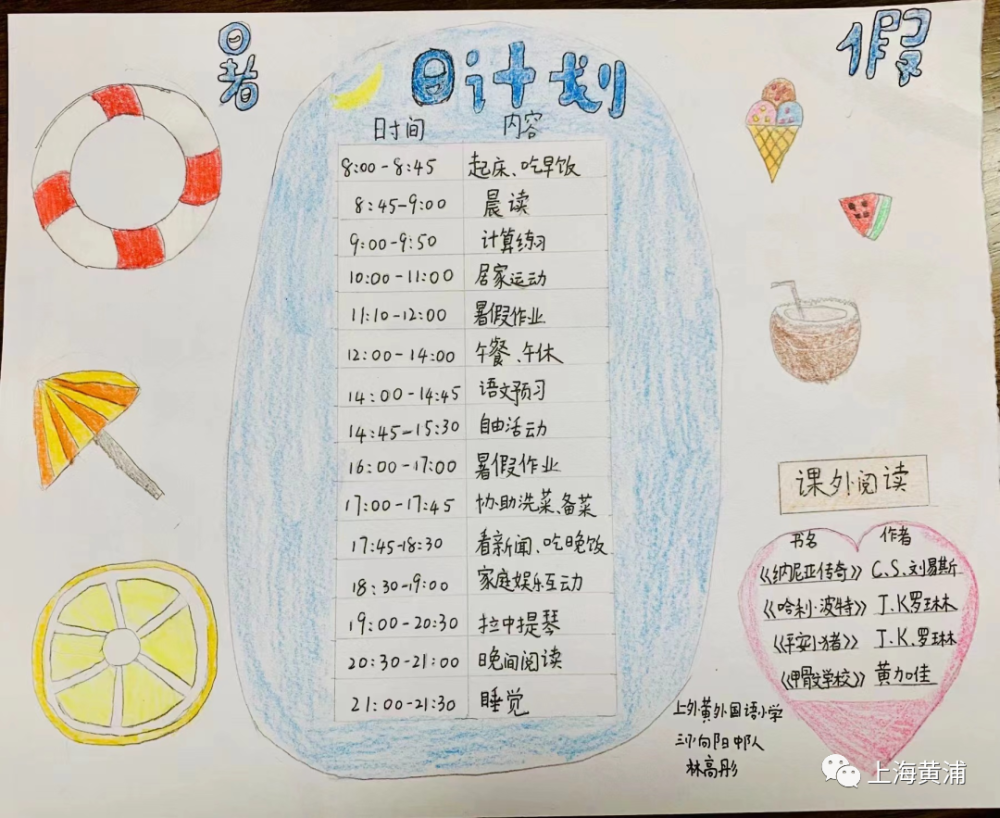 暑 假
日计划
时间 内容
8:00-8:45 起床、吃早饭
8:45-9:00 晨读
9:00-9:50 计算练习
10:00-11:00 居家运动
11:10-12:00 暑假作业
12:00-14:00 午餐、午休
14:00-14:45 语文预习
14:45-15:30 自由活动
16:00-17:00 暑假作业
17:00-17:45 协助洗菜、备菜
17:45-18:30 看新闻、吃晚饭
18:30-19:00 家庭娱乐互动
19:00-20:30 拉中提琴
20:30-21:00 晚间阅读
21:00-21:30 睡觉
课外阅读
书名 作者
《纳尼亚传奇》 C.S.刘易斯
《哈利·波特》 J.K罗琳
《平安小猪》 J.K.罗琳
《甲骨文学校》 黄加佳
上外黄外国语小学
三(1)向阳中队
林高彤
上海黄浦